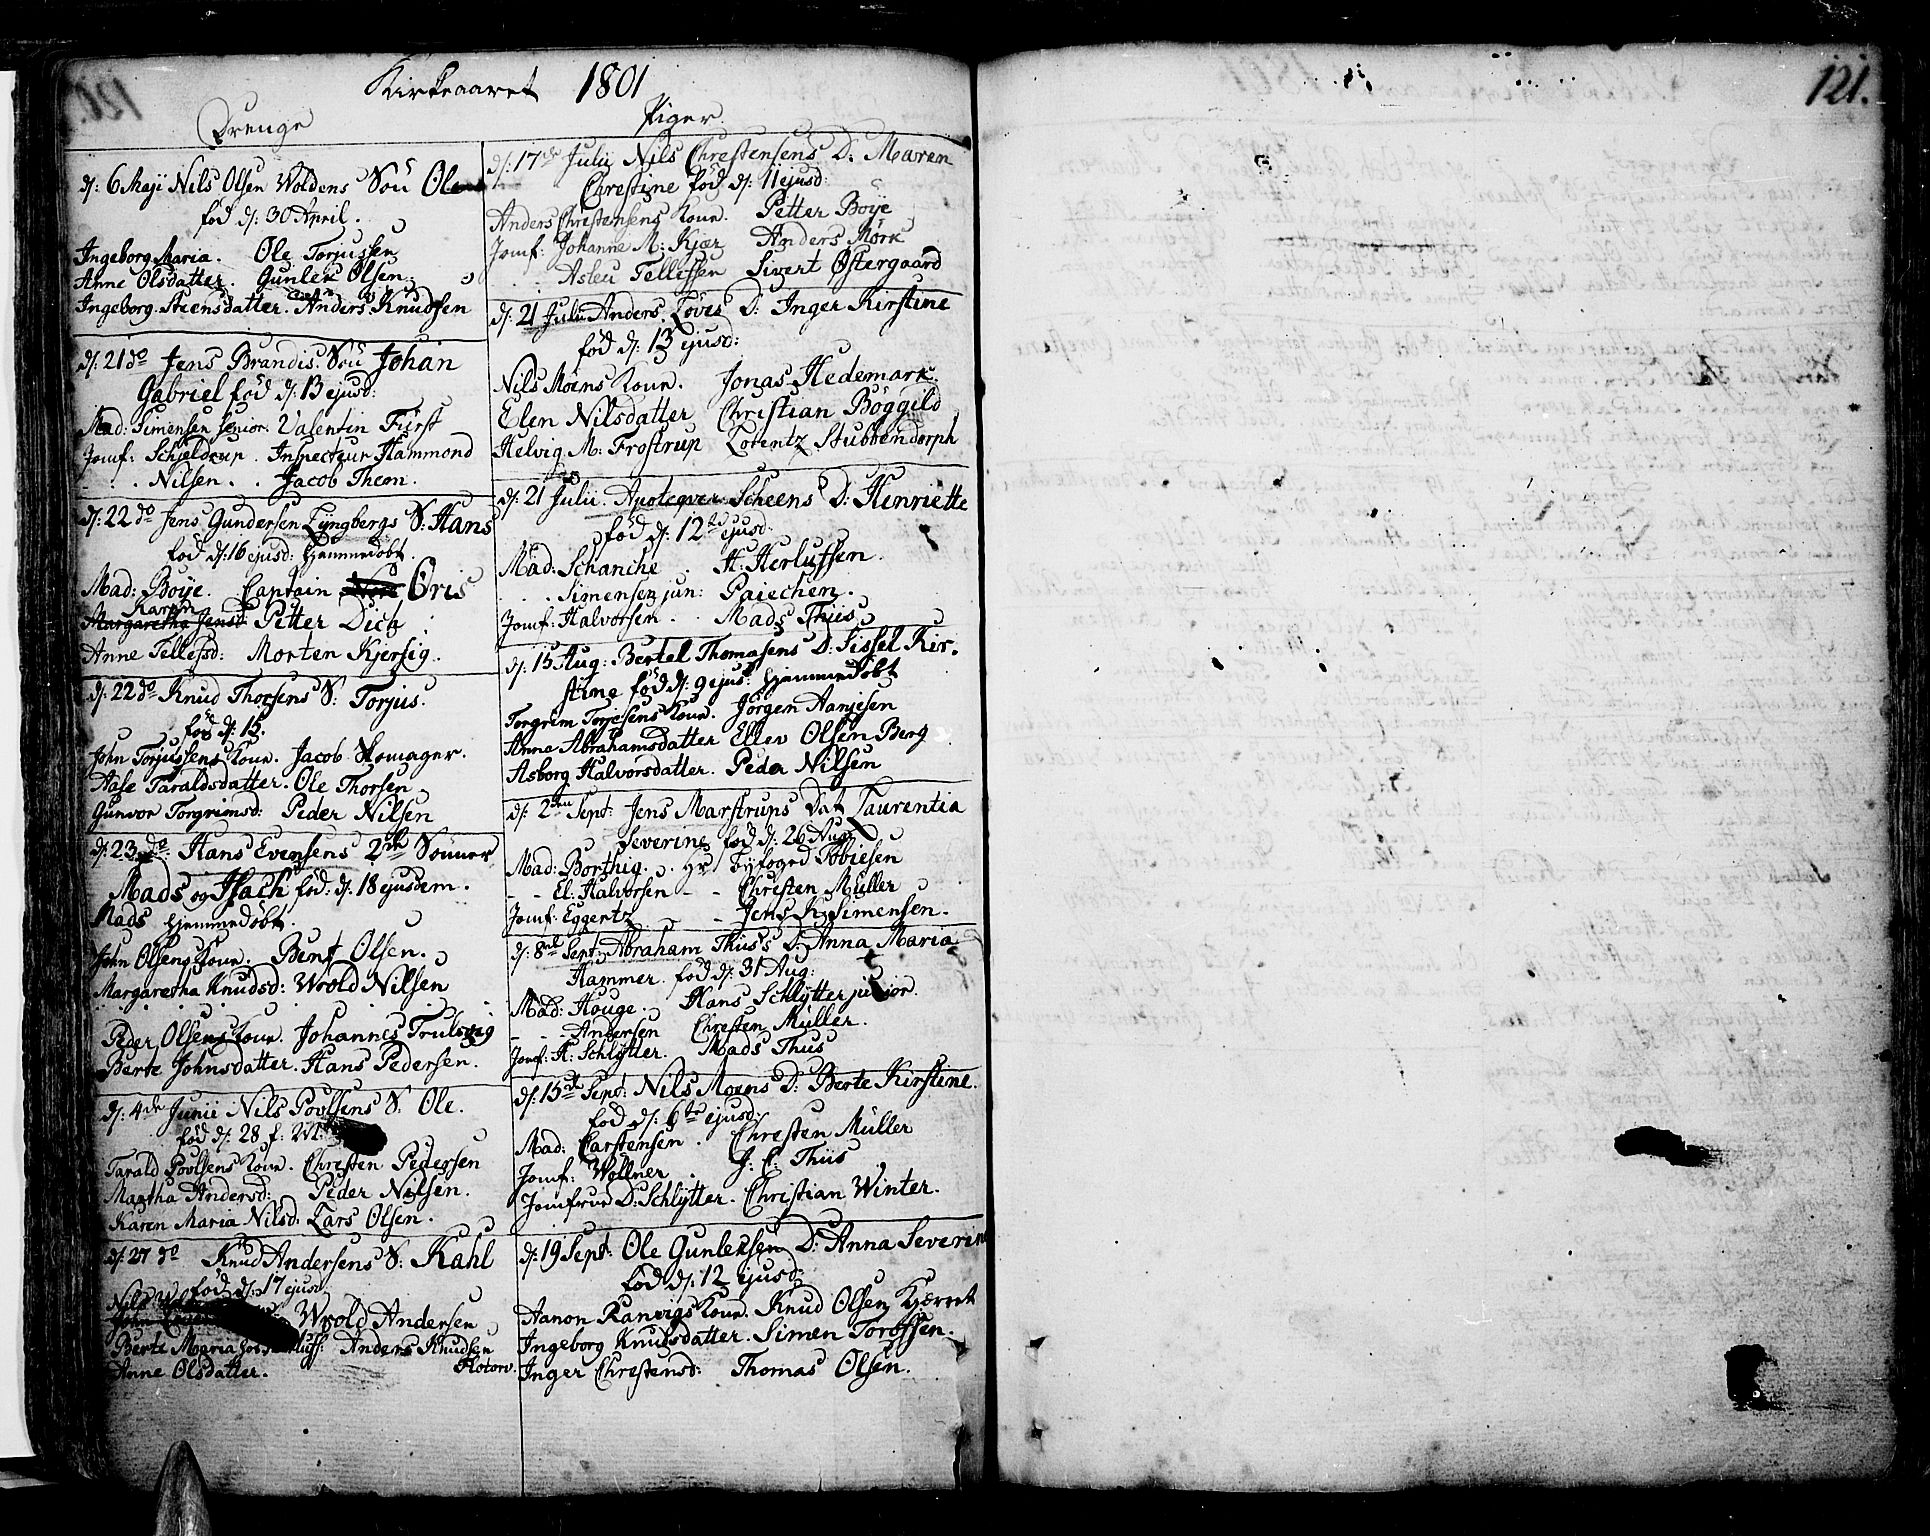 Kirkeaaret 1801
Drenge
d: 6 Maji Nils Olsen Woldens Søn Ole
fød d: 30 April.
Ingeborg Maria. Ole Torjussen
Anne Olsdatter. Gunler Olsen.
Ingeborg Steensdatter. Anders Knudsen
d: 21 do Jens Brandis Søn Johan
Gabriel fød d: 13 ejusd:
Mad: Simensen senior. Valentin Fürst
Jomf: Schieldrup. Inspecteur Hammond
. . Nilsen. . Jacob Thom.
d: 22 do Jens Gundersen Lyngbergs S: Hans
fød d: 16 ejusd: hjemmedøbt.
Mad: Boÿe. Captain Gris
Karen
Margaretha Jensd: Petter Dich
Anne Tellefsd: Morten Kjersig.
d: 22 do Knud Thorsens S: Torjus.
fød d: 15.
John Torjussens Kone. Jacob Skomager.
Aase Taraldsdatter. Ole Thorsen
Gunvor Torgrimsd: Peder Nilsen
d: 23 do Hans Evensens 2de Sønner
Mads og Isach fød: d: 18 ejusdem.
Mads hjemmedøbt.
John Olsens Kone. Bent Olsen.
Margaretha Knudsd: Wrold Nilsen
Peder Olsens Kone. Johannes Trulsvig
Berte Johnsdatter. Hans Pedersen.
d: 4de Junii Nils Povlsens S: Ole.
fød d: 28 f: M:
Tarald Povlsens Kone. Christen Pedersen
Martha Andersd: Peder Nilsen.
Karen Maria Nilsd. Lars Olsen.
d: 27 do Knud Andersens S: Kahl
fød d: 17 ejusd
Nils
John Wrold Andersen
Berte Maria Anders Knudsen
Anne Olsdatter. Plotorv.
Piger.
d: 17de Julii Nils Chrestensens D: Maren
Chrestine fød d: 11 ejusd:
Anders Christensens Kone. Petter Boÿe
Jomf: Johanne M: Kjær Anders Mørk
Asleu Tellefsen Sivert Østergaard
d: 21 Julii Anders Løves D: Inger Kirstine
fød d: 13 ejusd:
Nils Moens Kone. Jonas Hedemark
Elen Nilsdatter Christian Bøggild
Helvig M: Frostrup Lorentz Stubbendorph
d: 21 Julii. Apoteqver Scheens D: Henriette
fød d: 12te ejusd:
Mad: Schanche . H: Herlufsen.
. . Simensen jun: Paiechen.
Jomf: Halvorsen. . Mads Thiis
d: 15 Aug: Bertel Thomasens D: Sissel Kir-
stine fød d: 9 ejus: hjemmedøbt
Torgrim Torjesens Kone. Jørgen Aanjesen
Anna Abrahamsdatter Ellev Olsen Berg
Asborg Halvorsdatter. Peder Nilsen
d: 2den Sept: Jens Marstrups Dat Laurentia
Severine fød d: 26 Aug
Mad: Borthig. . Hr Byfoged Tobiesen
- - El: Halvorsen - - Christen Müller
Jomf: Eggertz - - Jens K: Simensen.
d: 8de Sept: Abraham Thiis's D: Anna Maria
Hammer. fød d: 31 Aug:
Mad: Houge. Hans Schlÿtter junior.
- - Andersen Chresten Müller.
Jomf: H: Schlÿtter. Mads Thiis
d: 15de Sept: Nils Moens D: Berte Kirstine.
fød d: 6te ejusd:
Mad: Carstensen. Chresten Müller
Jomf: Wollner . J: C: Thiis
Jomfrue D: Schlÿtter. Christian Winter.
d: 19 Sept: Ole Gunlersen D: Anna Severine
fød d: 12 ejusd:
Aanon Ranvigs Kone. Knud Olsen Kjærret
Ingeborg Knudsdatter. Simen Torbssen.
Inger Chrestensd: Thomas Olsen.
121.